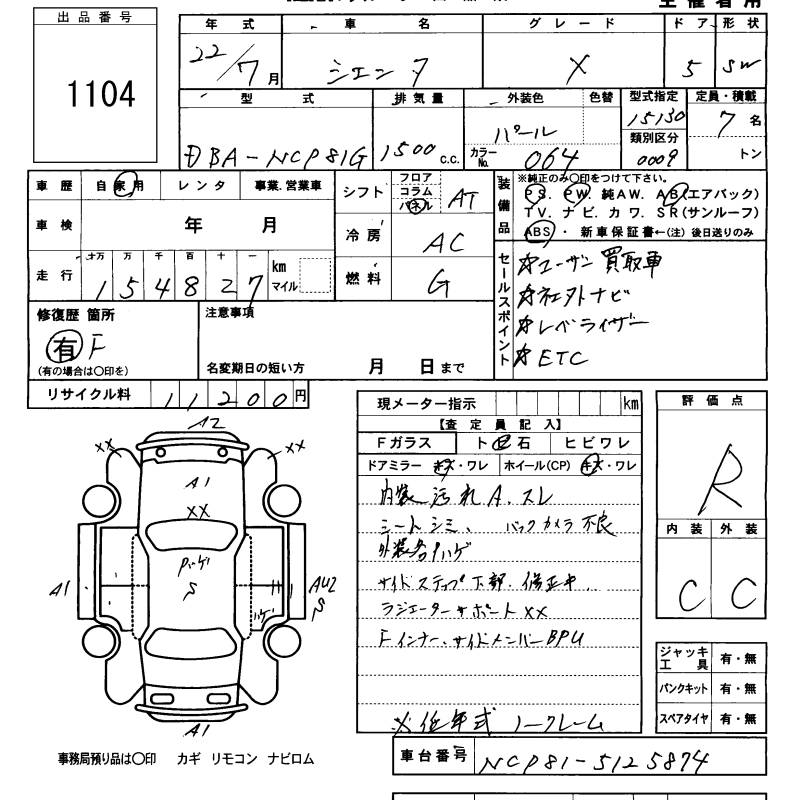 出品番号
1104
年式 車名 グレード ドア 形状
22/7月 シエンタ X 5 SW
型式 排気量 外装色 色替 型式指定 定員・積載
DBA-NCP81G 1500 c.c. パール 15130 7名
カラーNo. 064 類別区分 0009 トン
車歴 自家用 レンタ 事業.営業車
シフト フロア コラム パネル AT
装備品 ※純正のみ○印をつけて下さい。
PS. PW. 純AW. AB(エアバック)
TV. ナビ. カワ. SR(サンルーフ)
ABS・新車保証書←(注)後日送りのみ
車検 年 月
冷房 AC
走行 十万 万 千 百 十 一 km マイル
154827
燃料 G
セールスポイント
☆ユーザー買取車
☆社外ナビ
☆レベライザー
☆ETC
修復歴 箇所
有 F
(有の場合は○印を)
注意事項
名変期日の短い方 月 日まで
リサイクル料 11200円
現メーター指示 km
【査定員記入】
Fガラス ト已石 ヒビワレ
ドアミラー キズ・ワレ ホイール(CP) キズ・ワレ
内装汚れ A.スレ
シートシミ、バックカメラ不良
外装各ハゲ
サイドステップ下部.修正中
ラジエーターサポートXX
Fインナー、サイドメンバーBPU
※低年式ノークレーム
評価点
R
内装 外装
C C
A2
XX XX
A1
XX
ハゲ
S
A1 AU2
S
ハゲ
A1
ジャッキ工具 有・無
パンクキット 有・無
スペアタイヤ 有・無
事務局預り品は○印 カギ リモコン ナビロム
車台番号 NCP81-5125874